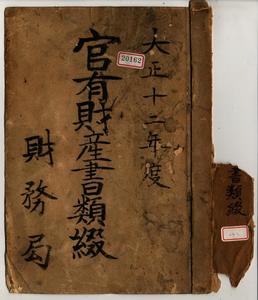 大正十二年度
20162
官有財産書類綴
財務局
書類綴